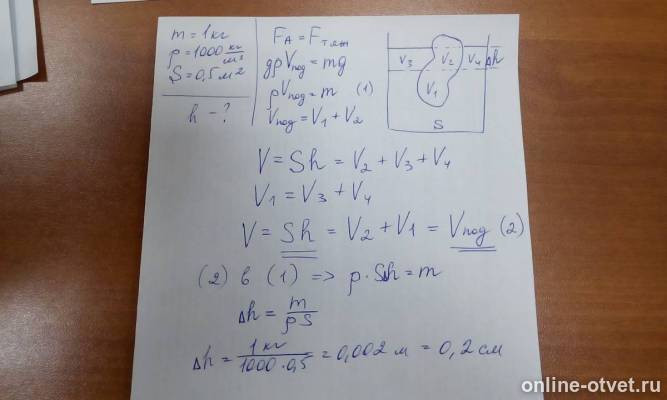 m = 1 кг
ρ = 1000 кг/м³
S = 0,5 м²
h - ?
F_A = F_тяж
gρV_под = mg
ρV_под = m (1)
V_под = V₁ + V₂
V₃ V₂ V₄ Δh
V₁
S
V = Sh = V₂ + V₃ + V₄
V₁ = V₃ + V₄
V = Sh = V₂ + V₁ = V_под (2)
(2) в (1) => ρ · SΔh = m
Δh = m/ρS
Δh = 1 кг/1000 · 0,5 = 0,002 м = 0,2 см
online-otvet.ru